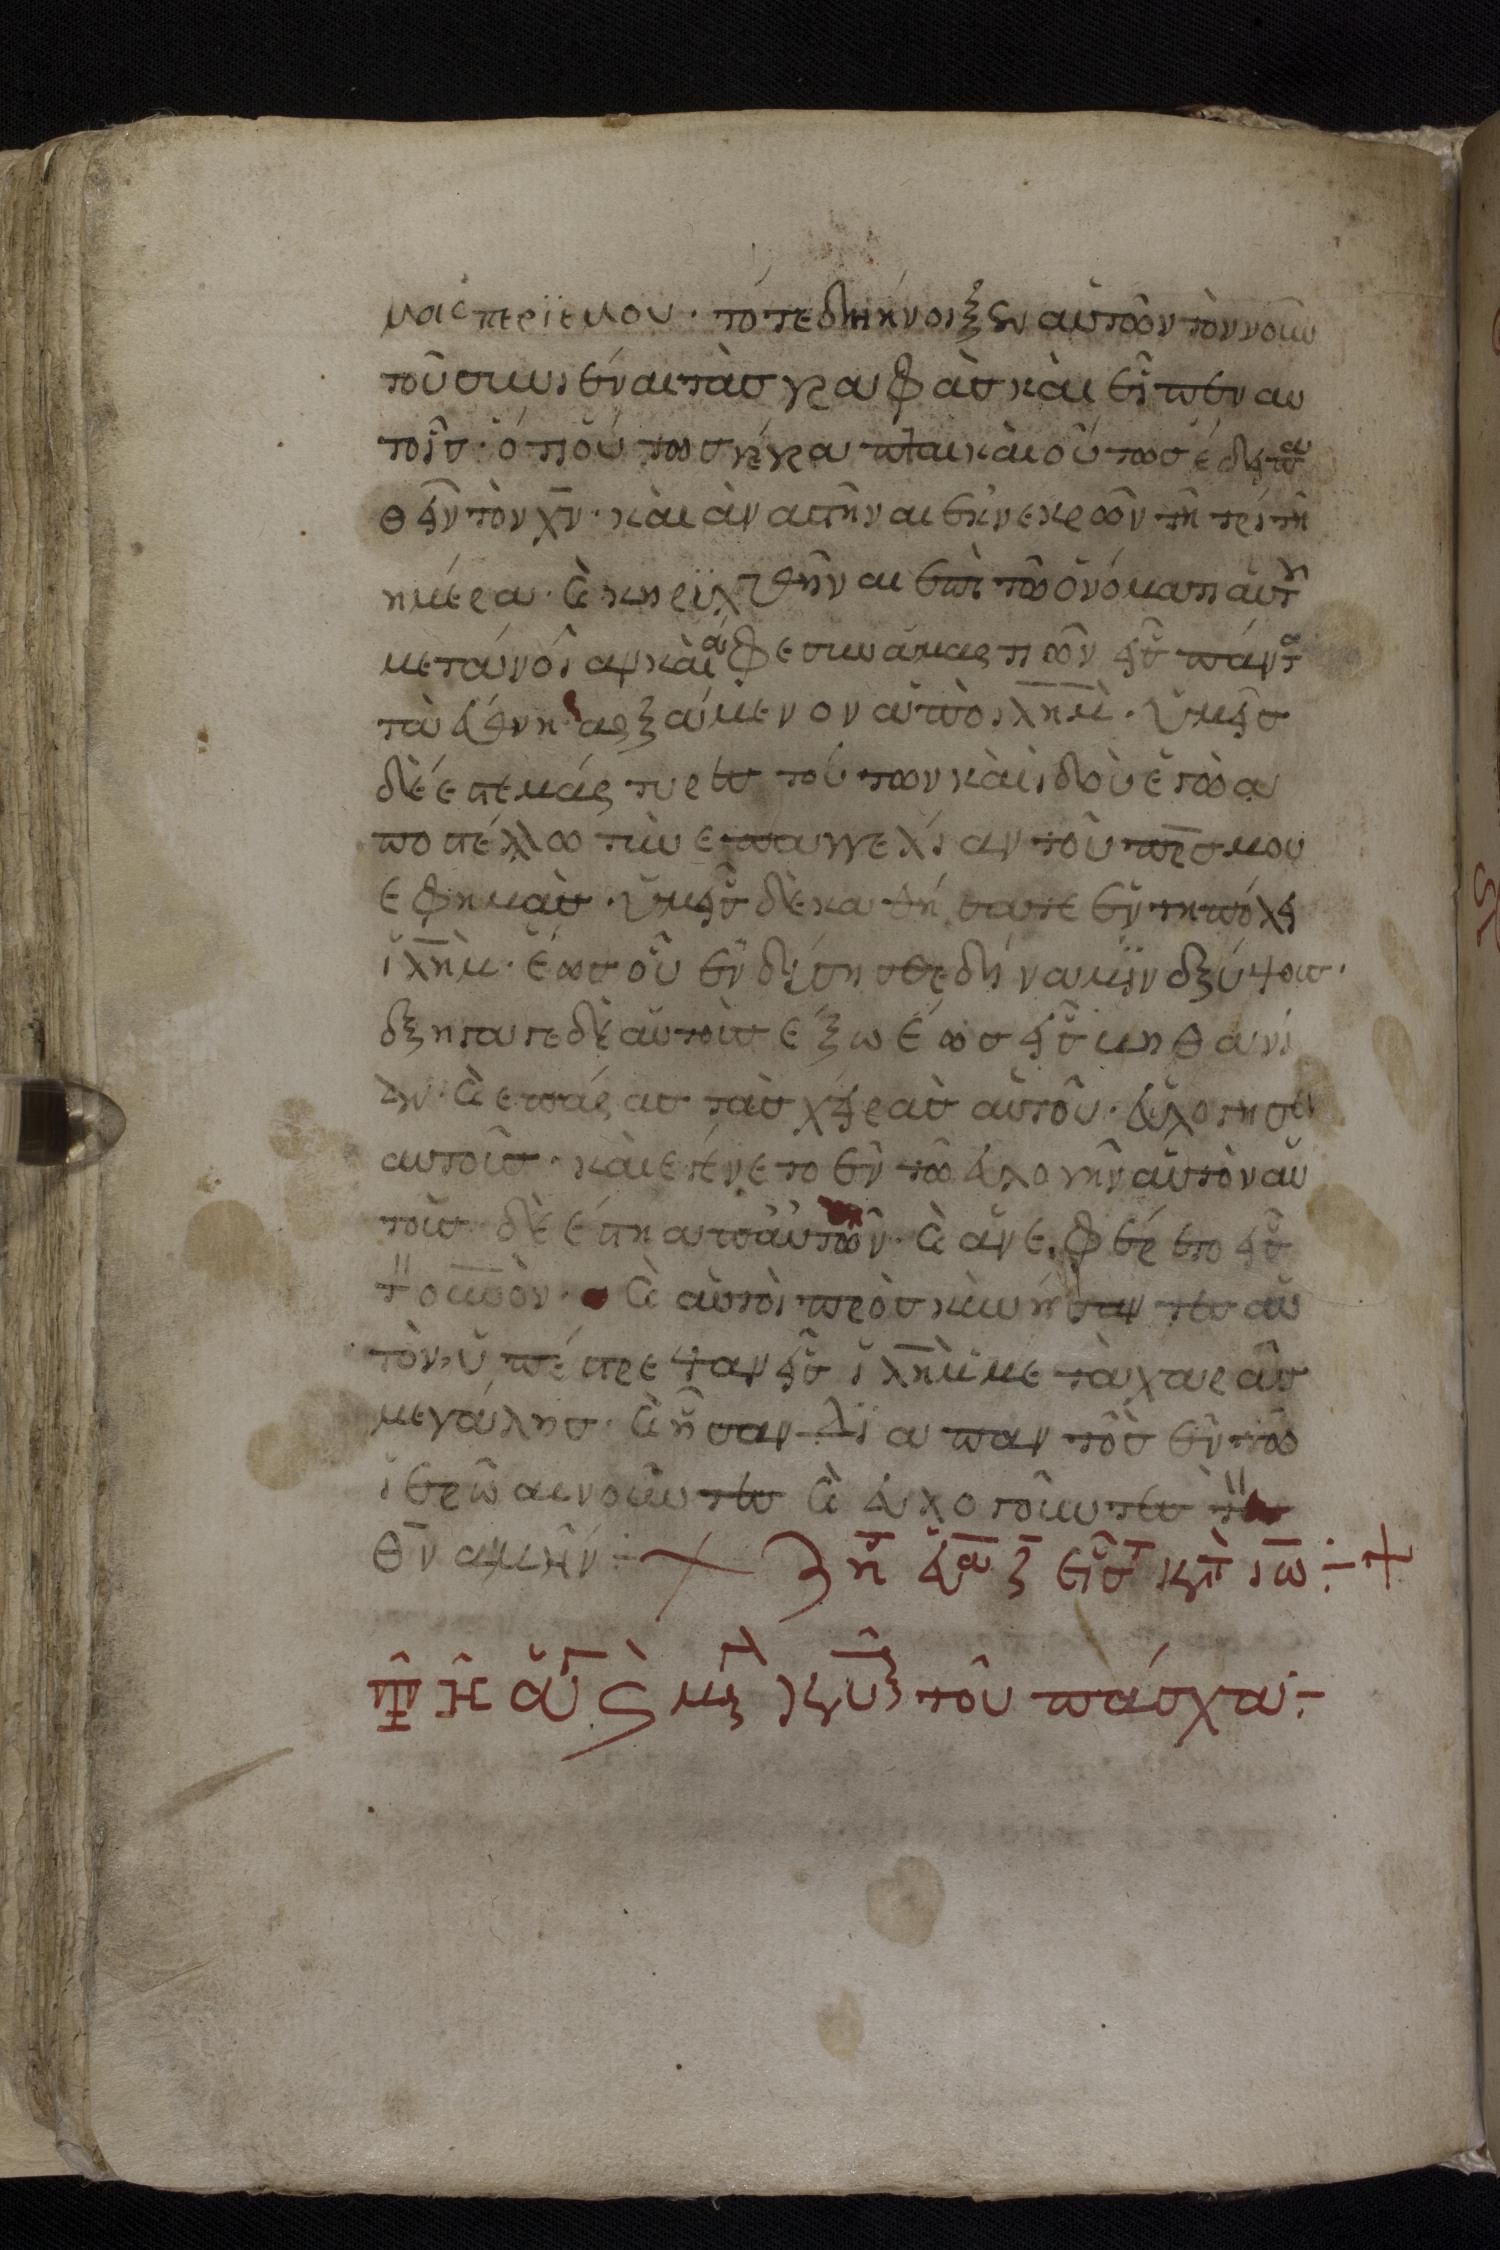 μοῖς περὶ ἐμοῦ · τότε διήνοιξεν αὐτῶν τὸν νοῦν
τοῦ συνιέναι τὰς γραφὰς καὶ εἶπεν αυ
τοῖς · ὅτι οὕτως γέγραπται καὶ οὕτως ἔδει πα
θεῖν τὸν χν · καὶ ἀναστῆναι ἐκ νεκρῶν τῆ τρίτη
ημέρα · κὲ κηρϊχθῆναι ἐπὶ τῶ ὀνόματι αὐτ
μετάνοιαν καὶ ἄφεσιν αμαρτιῶν εἰς πάντα
τὰ ἔθνη · αρξάμενον ἀπὸ ιλημ · ὑμεῖς
δέ ἐστε μάρτυρες τούτων καὶ ἰδοὺ ἐγὼ α
ποστέλλω τὴν επαγγελίαν τοῦ πρσ μου
εφ ημας · ὑμεῖς δὲ καθήσατε ἐν τη πόλει
ϊλημ · ἕως οὗ ἐνδύσησθε δύναμϊν ἐξ ύψους ·
ἐξηγαγε δὲ αὐτοὺς ἔξω ἕως εἰς βηθανί
αν · κὲ επάρας τὰς χεῖρας αὐτοῦ · εὐλογησεν
αυτοὺς · καὶ εγένετο ἐν τῶ εὐλογῆν αὐτὸν αὐ
τοὺς διέστη απ αὐτῶν · κὲ ἀνεφέρετο εἰς
τ ουνον · κὲ αὐτοὶ προσκυνήσαντες αὐ
τὸν, ὑπέστρεψαν εἰς ϊλημ με τὰ χαρᾶς
μεγάλης · κὲ ἦσαν δϊαπαντὸς ἐν τῶ
ἱερῶ αινοῦντες κὲ εὐλογοῦντες τ
θν αμήν ÷ ζη
του πάσχα ÷